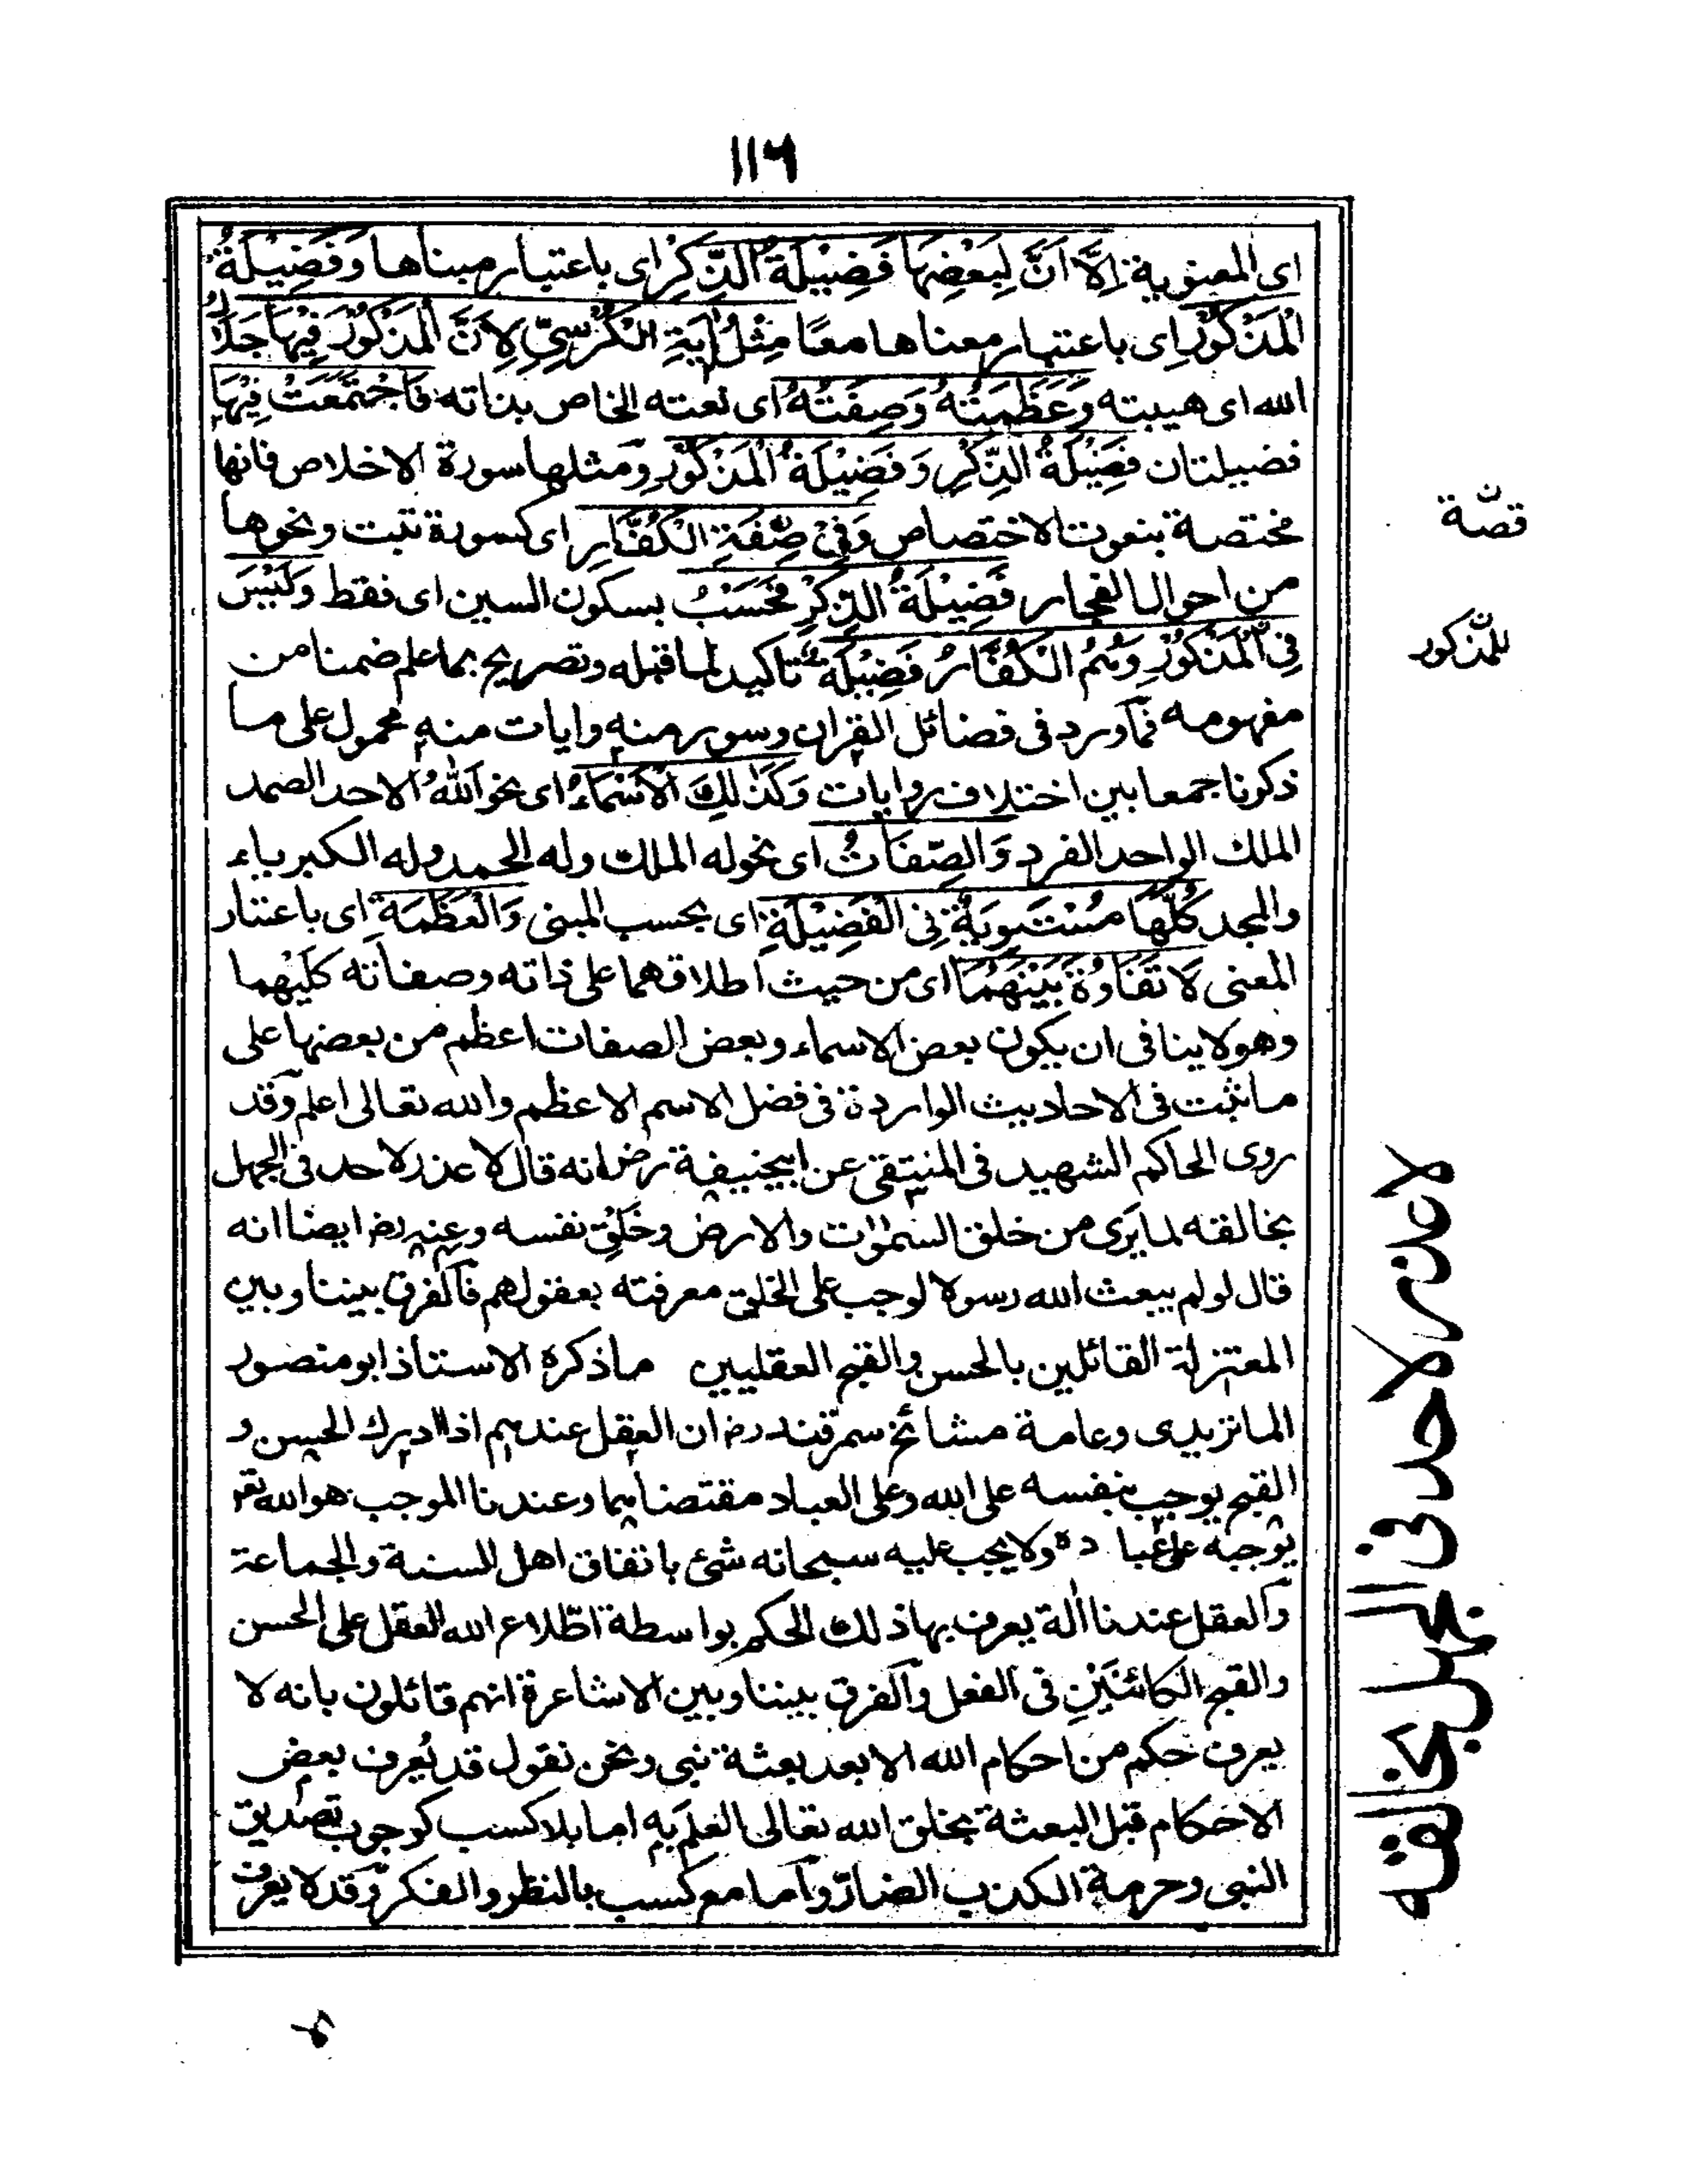 ١١٦
اى المعنوية اِلَّا اَنَّ لِبَعْضِهَا فَضِيْلَةُ الذِّكْرِ اى باعتبار مبناها وَفَضِيْلَةُ
الْمَذْكُوْرِ اى باعتبار معناها معًا مِثْلُ اٰيَةِ الْكُرْسِيِّ لِاَنَّ الْمَذْكُوْرَ فِيْهَا جَلَالُ
الله اى هيبته وَعَظْمَتُهُ وَصِفَتُهُ اى نعته الخاص بذاته فَاجْتَمَعَتْ فِيْهَا
فضيلتان فَضِيْلَةُ الذِّكْرِ وَفَضِيْلَةُ الْمَذْكُوْرِ ومثلها سورة الاخلاص فانها
مختصة بنعوت الاختصاص وَفِيْ صِفَةِ الْكُفَّارِ اى كسورة تبت ونحوها
قصّة
من احوال الفجار فَضِيْلَةُ الذِّكْرِ فَحَسْبُ بسكون السين اى فقط وَلَيْسَ
فِي الْمَذْكُوْرِ وَهُمُ الْكُفَّارُ فَضِيْلَةٌ تاكيد لما قبله وتصريح بما علم ضمنا من
للمذكور
مفهومه فما ورد فى فضائل القران وسور منه وايات منه محمول على ما
ذكرنا جمعا بين اختلاف روايات وَكَذٰلِكَ الْاَسْمَاءُ اى نحو اللهُ الاحد الصمد
الملك الواحد الفرد وَالصِّفَاتُ اى نحو له الملك وله الحمد وله الكبرياء
والمجد كُلُّهَا مُسْتَوِيَةٌ فِى الْفَضِيْلَةِ اى بحسب المبنى وَالْعَظْمَةِ اى باعتبار
المعنى لَا تَفَاوُةَ بَيْنَهُمَا اى من حيث اطلاقهما على ذاته وصفاته كليهما
وهو لا ينافى ان يكون بعض الاسماء وبعض الصفات اعظم من بعضها على
ما ثبت فى الاحاديث الواردة فى فضل الاسم الاعظم والله تعالى اعلم وقد
روى الحاكم الشهيد فى المنتقى عن ابيحنيفة رض انه قال لا عذر لاحد فى الجهل
بخالقه لما يَرى من خلق السمٰوٰت والارض وخَلْقِ نفسه وعنه رض ايضا انه
قال لو لم يبعث الله رسولا لوجب على الخلق معرفته بعقولهم فالفرق بيننا وبين
المعتزلة القائلين بالحسن والقبح العقليين ما ذكره الاستاذ ابو منصور
الماتريدى وعامة مشائخ سمرقند رض ان العقل عندهم اذا ادرك الحسن و
القبح يوجب بنفسه على الله وعلى العباد مقتضاهما وعندنا الموجب هو الله تع
يوجبه على عباده ولا يجب عليه سبحانه شئ باتفاق اهل السنة والجماعة
والعقل عندنا اٰلة يعرف بها ذلك الحكم بواسطة اطّلاع الله العقل على الحسن
والقبح الكائنَيْنِ فى الفعل والفرق بيننا وبين الاشاعرة انهم قائلون بانه لا
يعرف حكم من احكام الله الا بعد بعثة نبى ونحن نقول قد يُعرف بعض
الاحكام قبل البعثة بخلق الله تعالى العلم به اما بلا كسب كوجوب تصديق
النبى وحرمة الكذب الضارّ واما مع كسب بالنظر والفكر وقد لا يعرف
لا عذر لاحد فى الجهل بخالقه